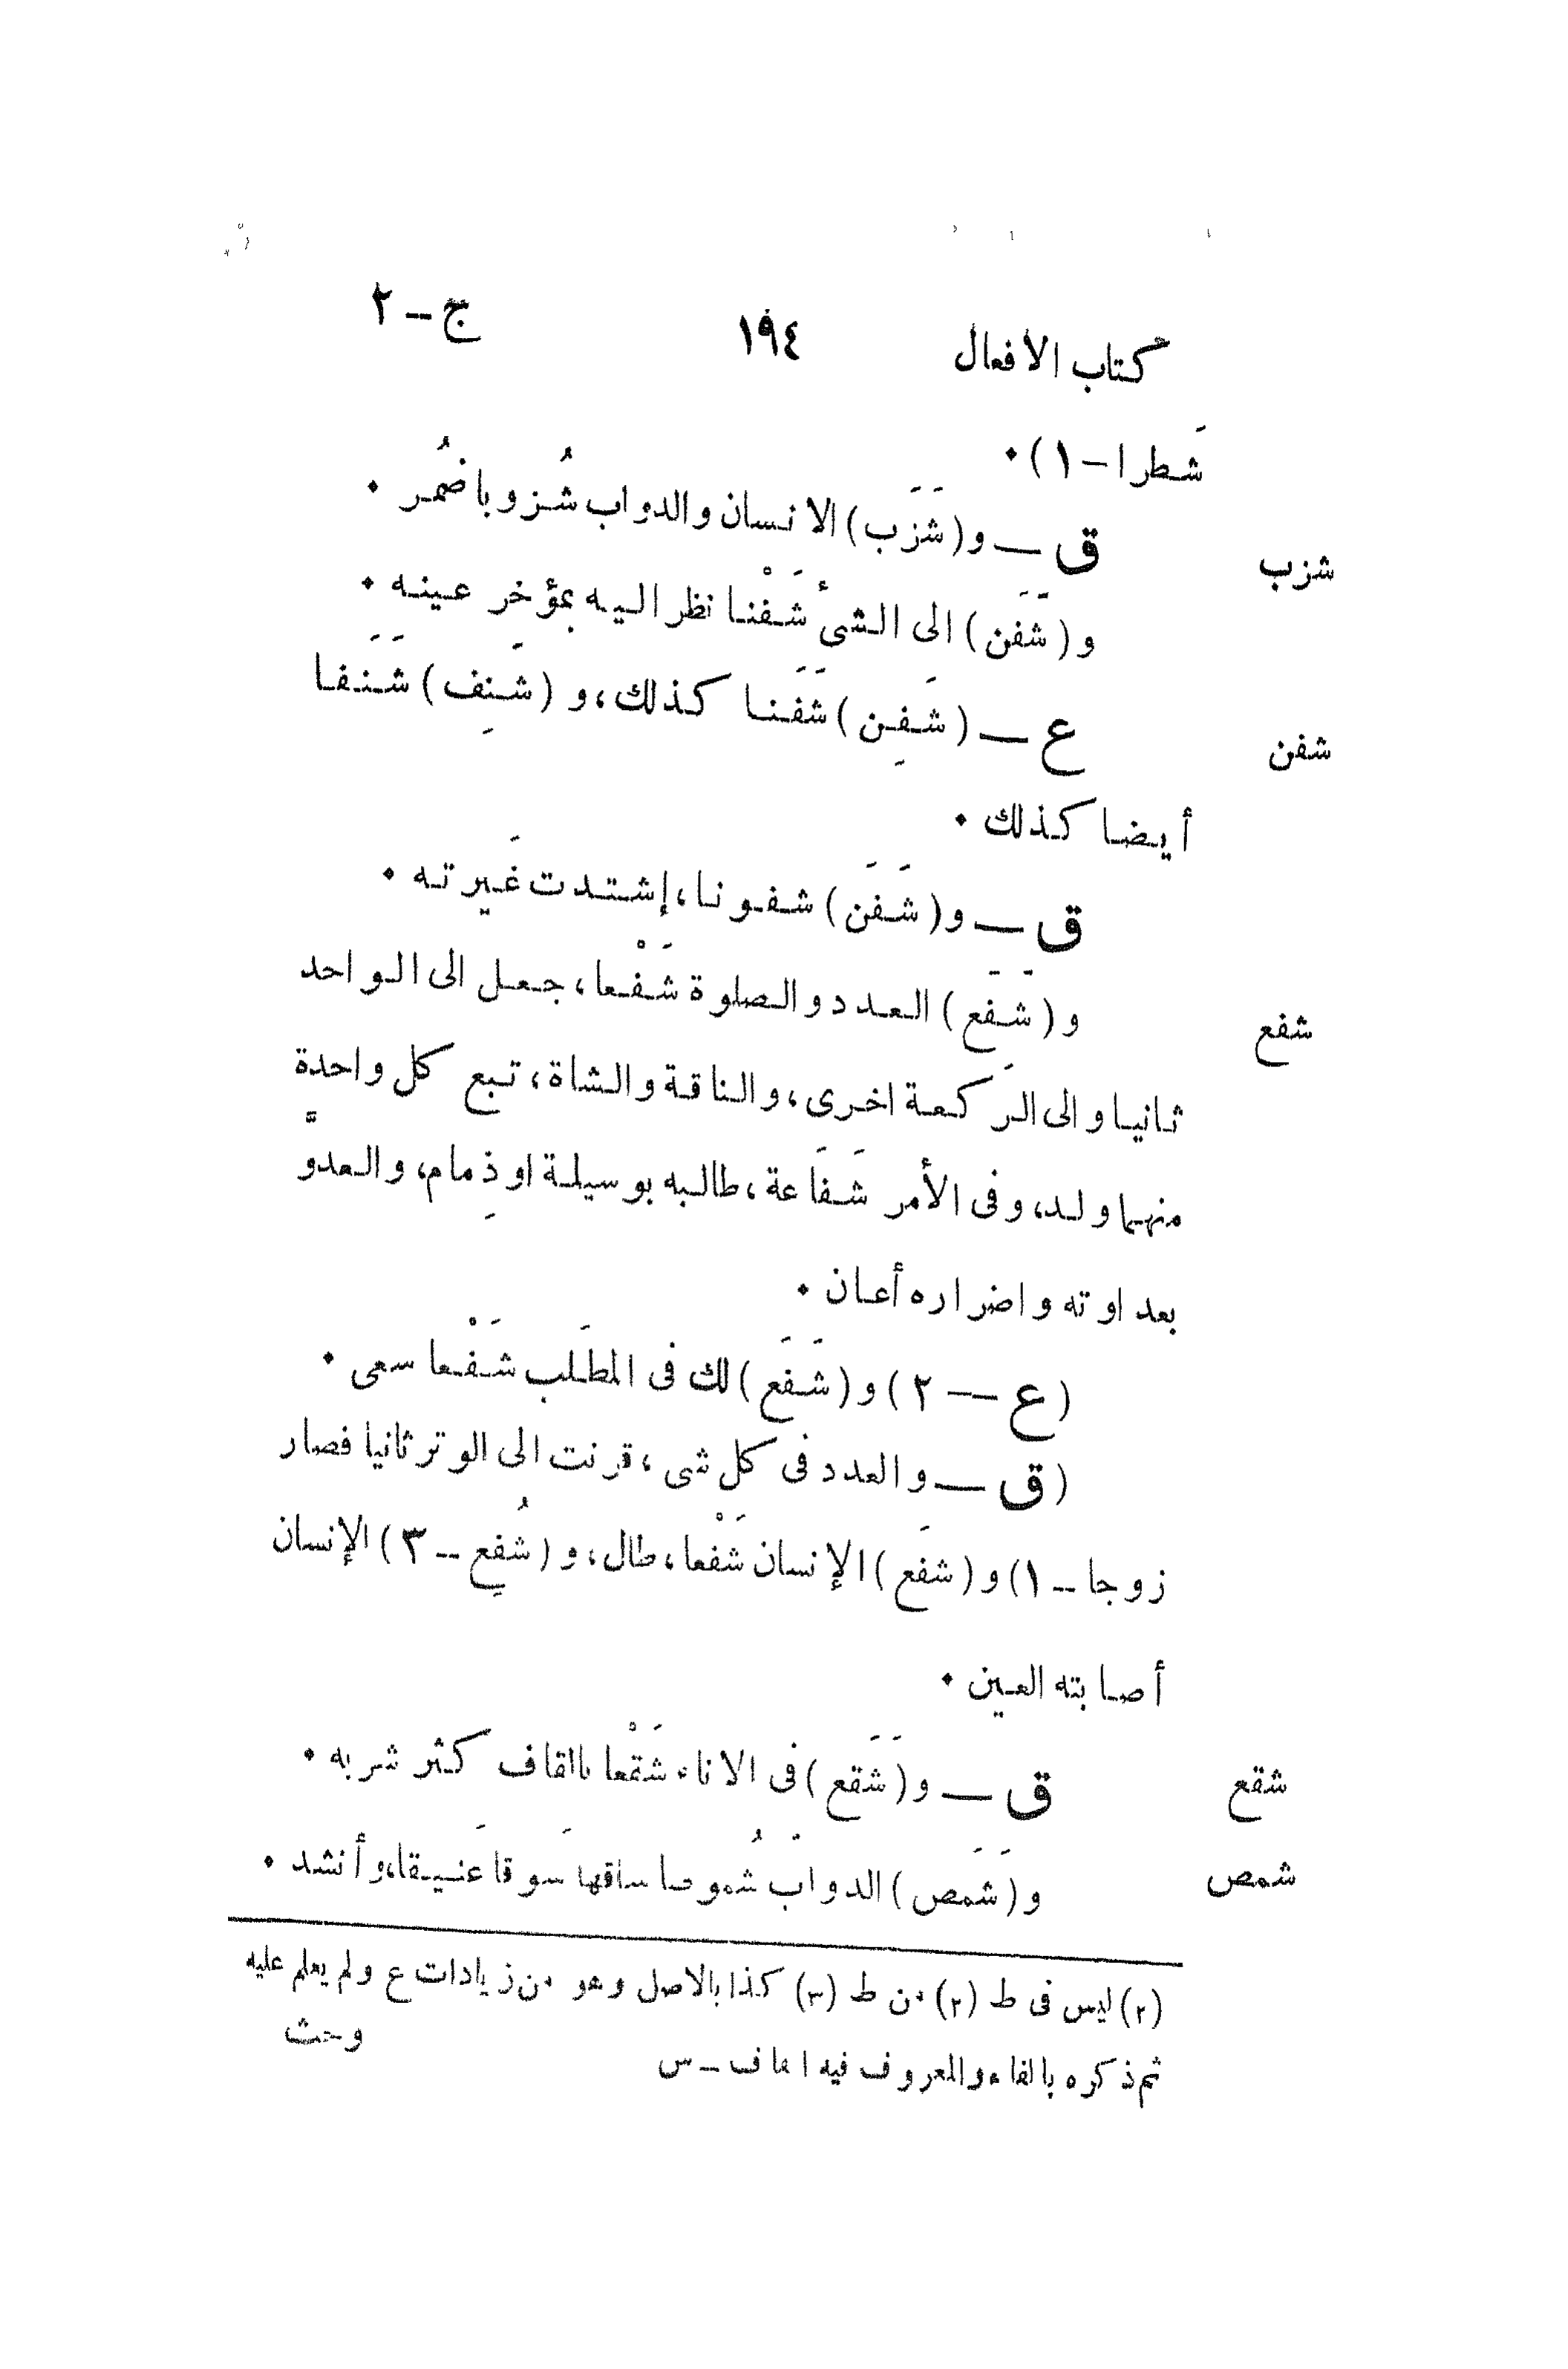 كتاب الافعال ١٩٤ ج – ٢
شَطرا – ١) ٠
شزب ق — و (شَزَب) الانسان والدواب شُزوبا ضمُر ٠
و (شَفَن) الى الشئ شَفْنا نظر اليه بمؤخر عينه ٠
شفن ع — (شَفِن) شَفَنا كذلك، و (شَنِف) شَنَفا
أيضا كذلك ٠
ق — و (شَفَن) شفونا، إشتدت غَيرته ٠
شفع و (شَفَع) العدد والصلوة شَفْعا، جعل الى الواحد
ثانيا والى الرَكعة اخرى، والناقة والشاة، تبع كل واحدة
منهما ولد، وفى الأمر شَفَاعة، طالبه بوسيلة او ذِمام، والعدوَّ
بعداوته واضراره أعان ٠
(ع — ٢) و (شَفَع) لك فى المطَلب شَفْعا سعى ٠
(ق — والعدد فى كل شى، قرنت الى الوتر ثانيا فصار
زوجا – ١) و (شفَع) الإنسان شَفْعا، طال، و (شُفِع – ٣) الإنسان
أصابته العين ٠
شقع ق — و (شَقَع) فى الاناء شَقْعا بالقاف كثر شربه ٠
شمص و (شَمَص) الدوابَ شُموصا ساقها سَوقا عَنيقا، وأنشد ٠
(٢) ليس فى ط (٢) من ط (٣) كذا بالاصل وهو من زيادات ع ولم يعلم عليه
ثم ذكره بالفاء والمعروف فيه القاف – س
وحث